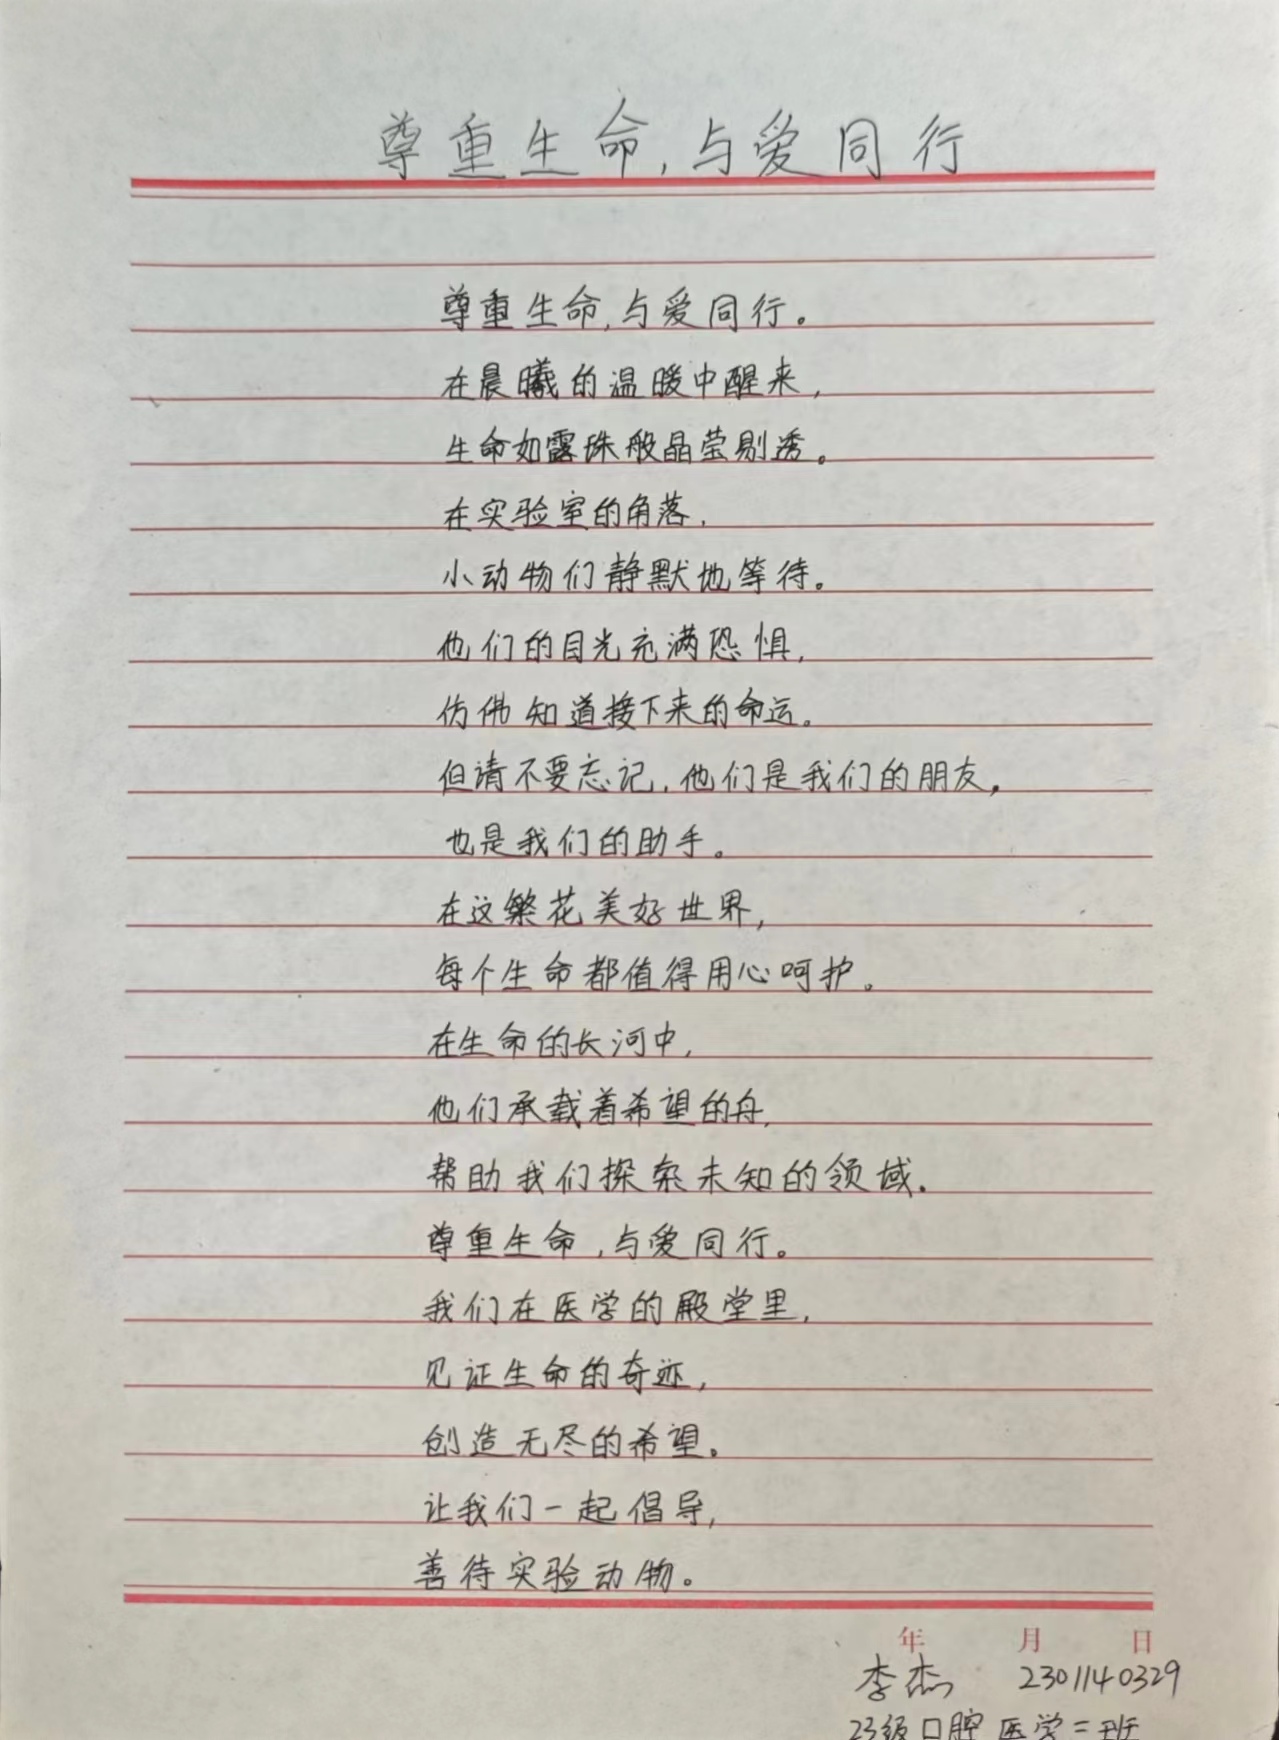 尊重生命,与爱同行
尊重生命,与爱同行。
在晨曦的温暖中醒来,
生命如露珠般晶莹剔透。
在实验室的角落,
小动物们静默地等待。
他们的目光充满恐惧,
仿佛知道接下来的命运。
但请不要忘记,他们是我们的朋友,
也是我们的助手。
在这繁花美好世界,
每个生命都值得用心呵护。
在生命的长河中,
他们承载着希望的舟,
帮助我们探索未知的领域.
尊重生命,与爱同行。
我们在医学的殿堂里,
见证生命的奇迹,
创造无尽的希望。
让我们一起倡导,
善待实验动物。
年 月 日
李杰 2301140329
23级口腔医学二班